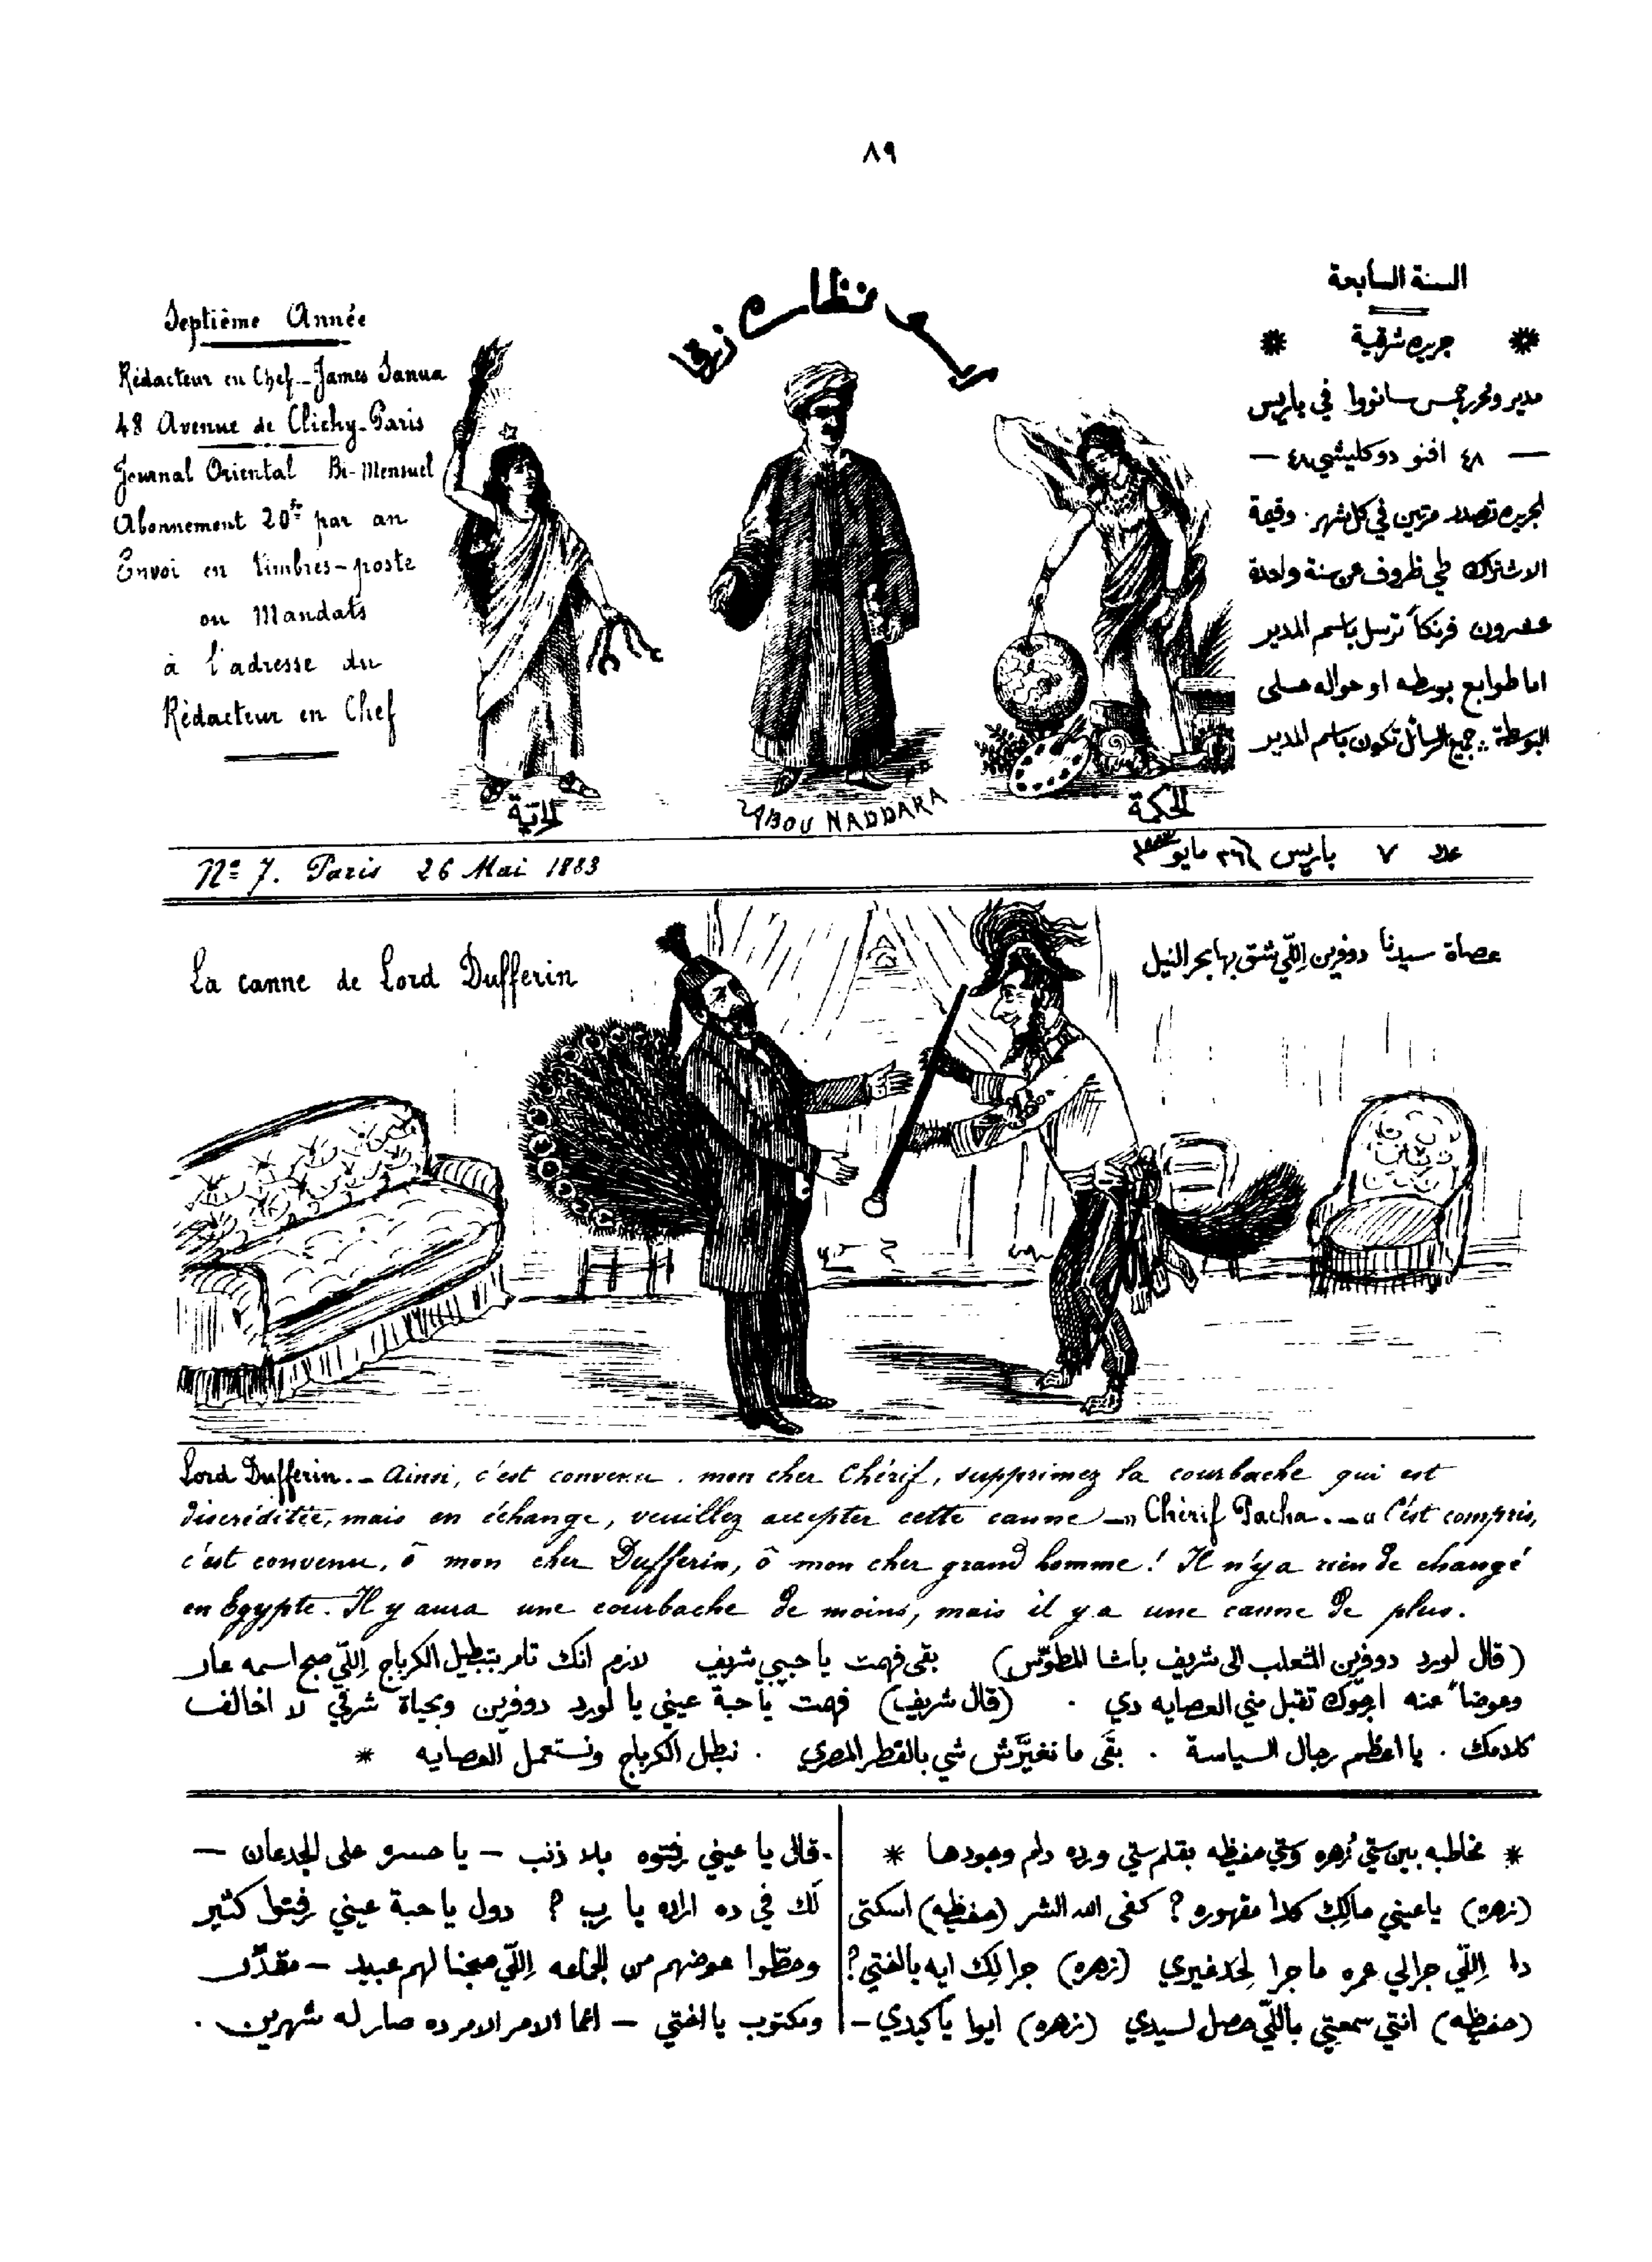 ٨٩
Septième Année
Rédacteur en Chef_James Sanua
48 Avenue de Clichy_Paris
Journal Oriental Bi-Mensuel
Abonnement 20fr par an
Envoi en timbres-poste
ou Mandats
à l'adresse du
Rédacteur en Chef
نظارة زرقا
السنة السابعة
* جريده شرقية *
مدير ومحرر جمس سانووا في باريس
— ٤٨ افنو دو كليشي ٤٨ —
الجريده تصدر مرتين في كل شهر . وقيمة
الاشتراك طي ظروف عن سنة واحدة
عشرون فرنكاً ترسل باسم المدير
اما طوابع بوسطه او حواله على
البوسطة .. جميع الرسائل تكون باسم المدير
الحرّية
ABOU NADDARA
الحكمة
Nº 7. Paris 26 Mai 1883
عدد ٧ باريس ٢٦ مايو ١٨٨٣
La canne de Lord Dufferin
عصاة سيدنا دوفرين اللّي شق بها بحر النيل
Lord Dufferin._ Ainsi, c'est convenu . mon cher Chérif, supprimez la courbache qui est
discréditée, mais en échange, veuillez accepter cette canne _" Chérif Pacha._" C'est compris,
c'est convenu, ô mon cher Dufferin, ô mon cher grand homme! Il n'y a rien de changé
en Egypte. Il y aura une courbache de moins, mais il y a une canne de plus.
(قال لورد دوفرين المتعلب الى شريف باشا المطوّس) بقى فهمت يا حبيبي شريف لازم انك تامر بتبطيل الكرباج اللّي صبح اسمه عار
وعوضاً عنه ارجوك تقبل مني العصايه دي . (قال شريف) فهمت يا حبة عيني يا لورد دوفرين وبحياة شرفي لا اخالف
كلامك . يا اعظم رجال السياسة . بقَى ما تغيَّرش شي بالقطر المصري . نبطل الكرباج ونستعمل العصايه *
* مخاطبه بين ستي زُهره وستي حفيظه بقلم ستي ورده دام وجودها *
(زهره) يا عيني مالِك كدا مقهوره ? كفى الله الشر (حفيظه) اسكتى
دا اللّي جرالي عمره ما جرا لِحَد غيري (زهره) جرا لِك ايه يا اختي?
(حفيظه) انتي سمعتِي باللّي حصل لسيدي (زهره) ايوا يا كبدي —
. قال يا عيني رفتوه بلا ذنب — يا حسره على الجدعان —
لَك في ده اراده يا رب ? دول يا حبة عيني رِفتوا كتير
وحطّوا عوضهم من الجماعه اللّي صبحنا لهم عبيد — مقدَّر
ومكتوب يا اختي — انما الامر الامر ده صار له شهرين .